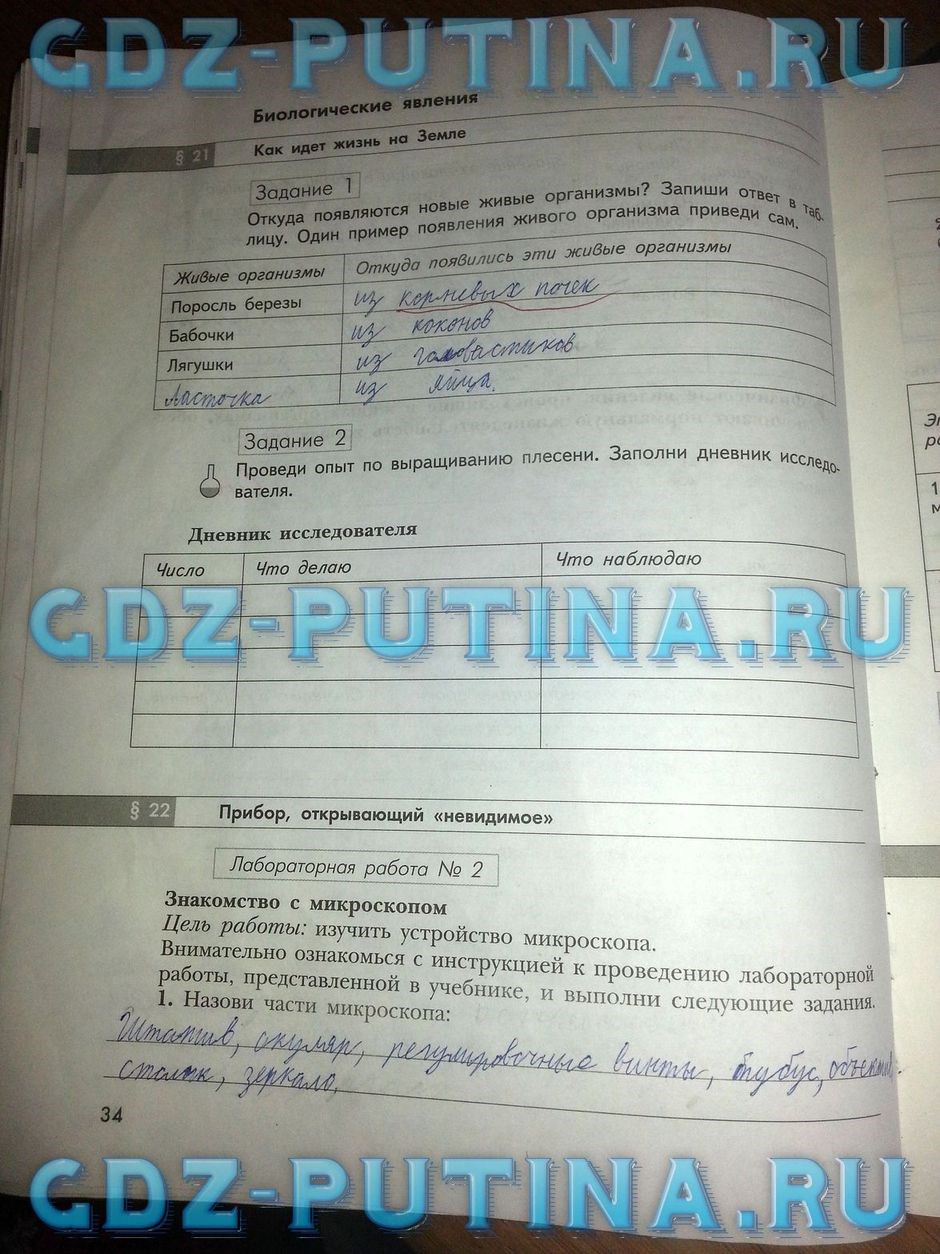 GDZ-PUTINA.RU
Биологические явления
§ 21 Как идет жизнь на Земле
Задание 1
Откуда появляются новые живые организмы? Запиши ответ в таб-
лицу. Один пример появления живого организма приведи сам.
Живые организмы Откуда появились эти живые организмы
Поросль березы из корневых почек
Бабочки из коконов
Лягушки из головастиков
Ласточка из яйца.
Задание 2
Проведи опыт по выращиванию плесени. Заполни дневник исследо-
вателя.
Дневник исследователя
Число Что делаю Что наблюдаю
GDZ-PUTINA.RU
§ 22 Прибор, открывающий «невидимое»
Лабораторная работа № 2
Знакомство с микроскопом
Цель работы: изучить устройство микроскопа.
Внимательно ознакомься с инструкцией к проведению лабораторной
работы, представленной в учебнике, и выполни следующие задания.
1. Назови части микроскопа:
Штатив, окуляр, регулировочные винты, тубус, объектив.
столик, зеркало.
34
GDZ-PUTINA.RU